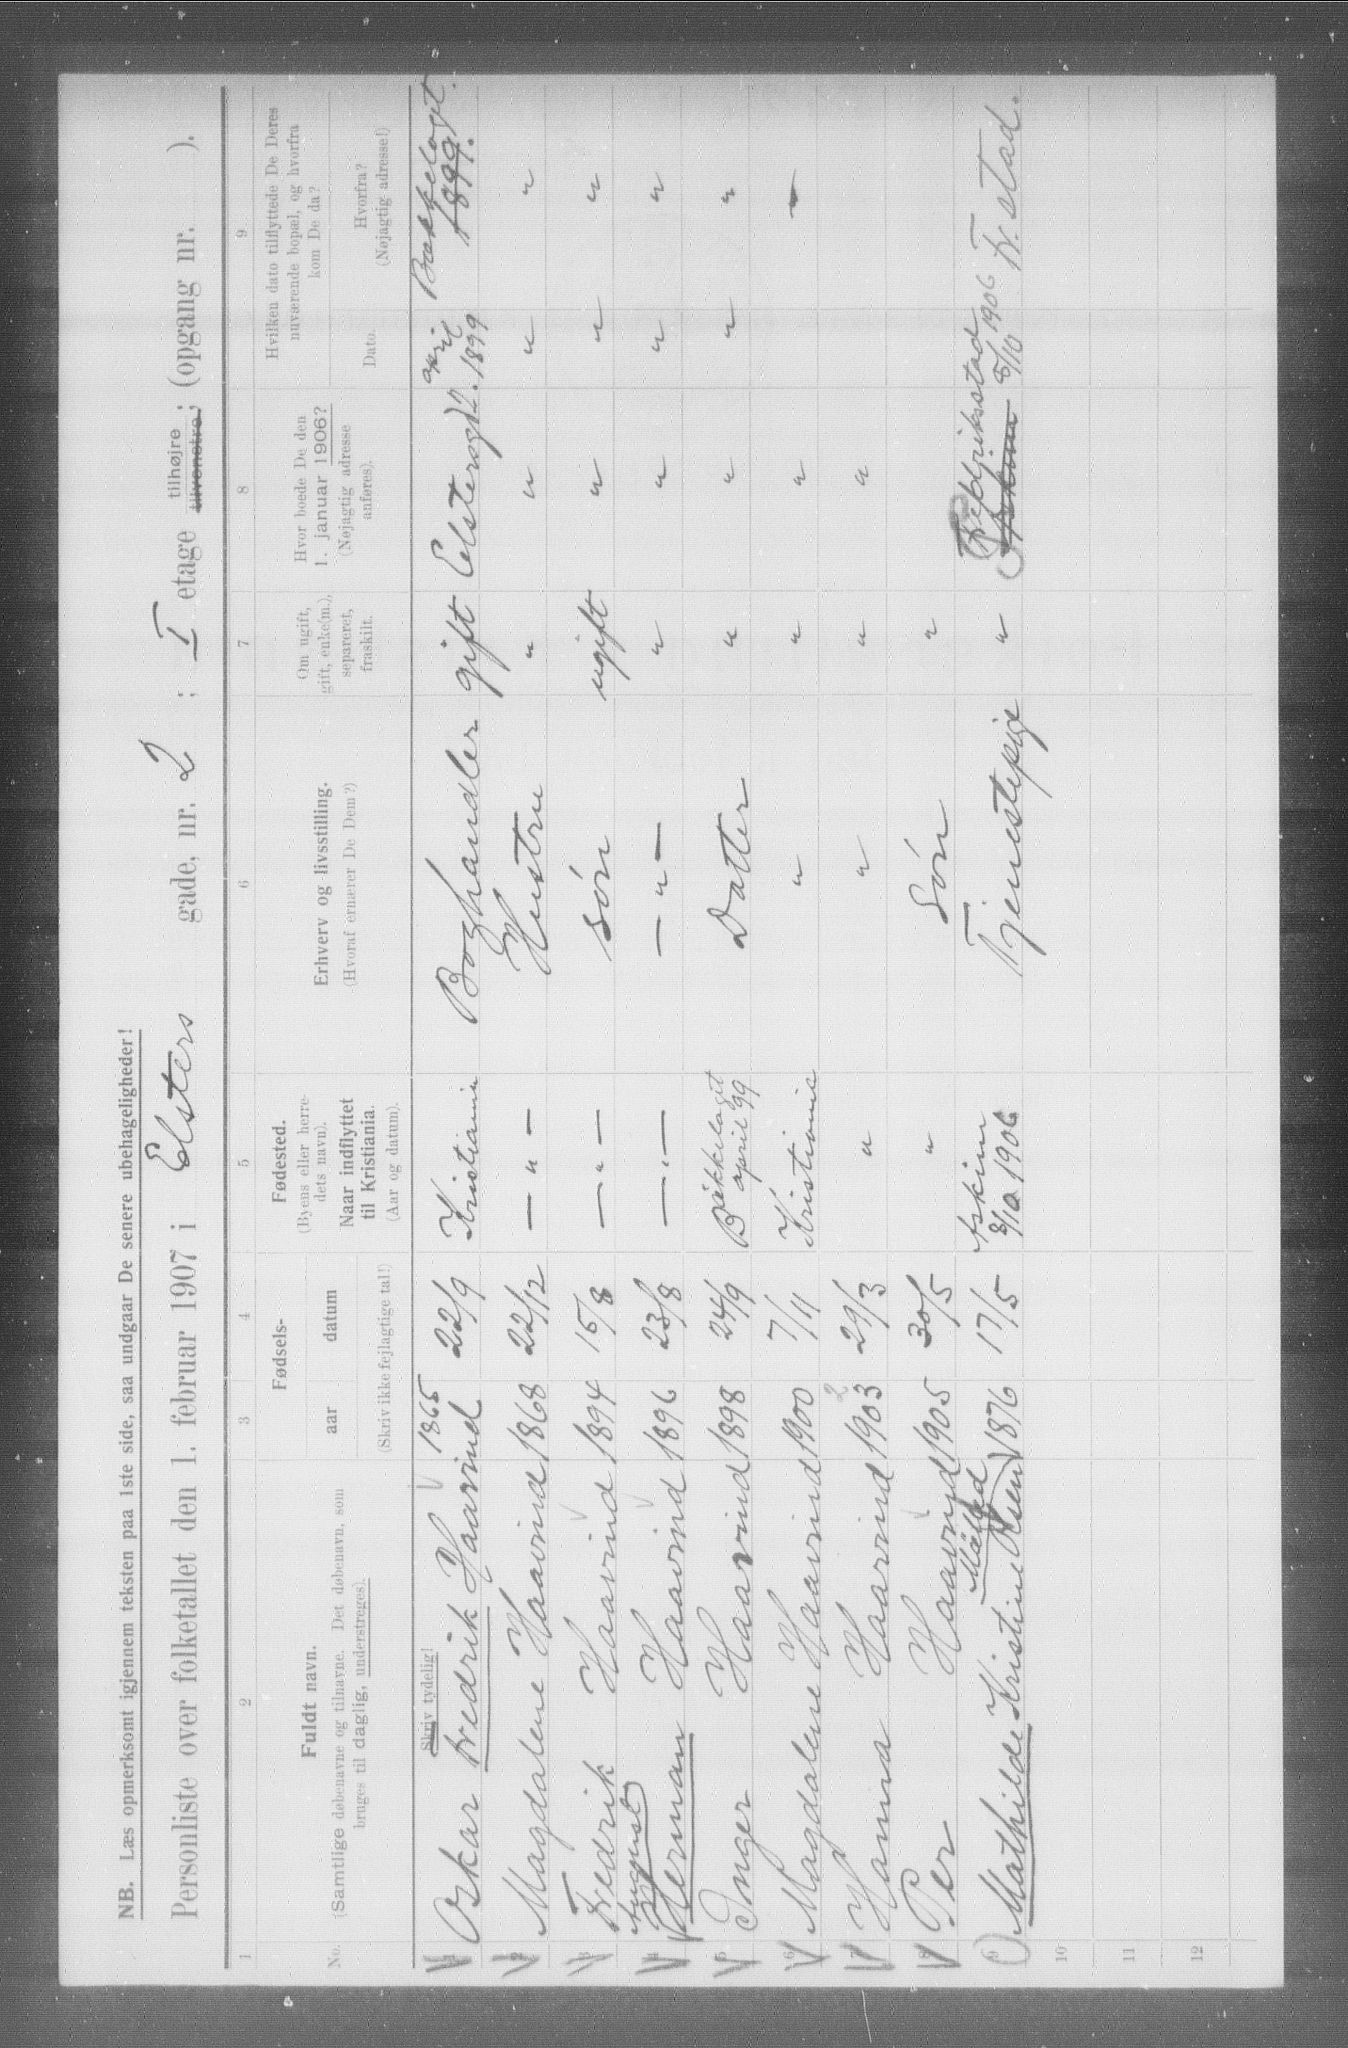 NB. Læs opmerksomt igjennem teksten paa 1ste side, saa undgaar De senere ubehageligheder!
Personliste over folketallet den 1. februar 1907 i Elsters gade, nr. 2 ; I etage tilhøjre tilvenstre; (opgang nr. ).
1 2 3 4 5 6 7 8 9
No. Fuldt navn. (Samtlige døbenavne og tilnavne. Det døbenavn, som bruges til daglig, understreges). Fødsels- aar datum (Skriv ikke fejlagtige tal!) Fødested. (Byens eller herredets navn). Naar indflyttet til Kristiania. (Aar og datum). Erhverv og livsstilling. (Hvoraf ernærer De Dem?) Om ugift, gift, enke(m.), separeret, fraskilt. Hvor boede De den 1. januar 1906? (Nøjagtig adresse anføres). Hvilken dato tilflyttede De Deres nuværende bopæl, og hvorfra kom De da? Dato. Hvorfra? (Nøjagtig adresse!)
Skriv tydelig!
1 Oskar Fredrik Haavind 1865 22/9 Kristiania Boghandler gift Elstersgt 2. april 1899 Bækkelaget. 1899.
2 Magdalene Haavind 1868 22/12 — " — Hustru " " " "
3 Fredrik Haavind 1894 15/8 — " — søn ugift " " "
4 Herman Haavind 1896 23/8 — " — — " — " " " "
5 Inger Haavind 1898 24/9 Bækkelaget april 99 Datter " " " "
6 Magdalene Haavind 1900 7/11 Kristiania " " " "
7 Hanna Haavind 1903 2 29/3 " " " "
8 Per Haavind 1905 30/5 " Søn "
9 Mathilde Kristine Olsen 1876 17/5 Askim 8/10 1906 Tjenestepige " Fredriksstad Askim 8/10 1906 Fr. stad.
10
11
12